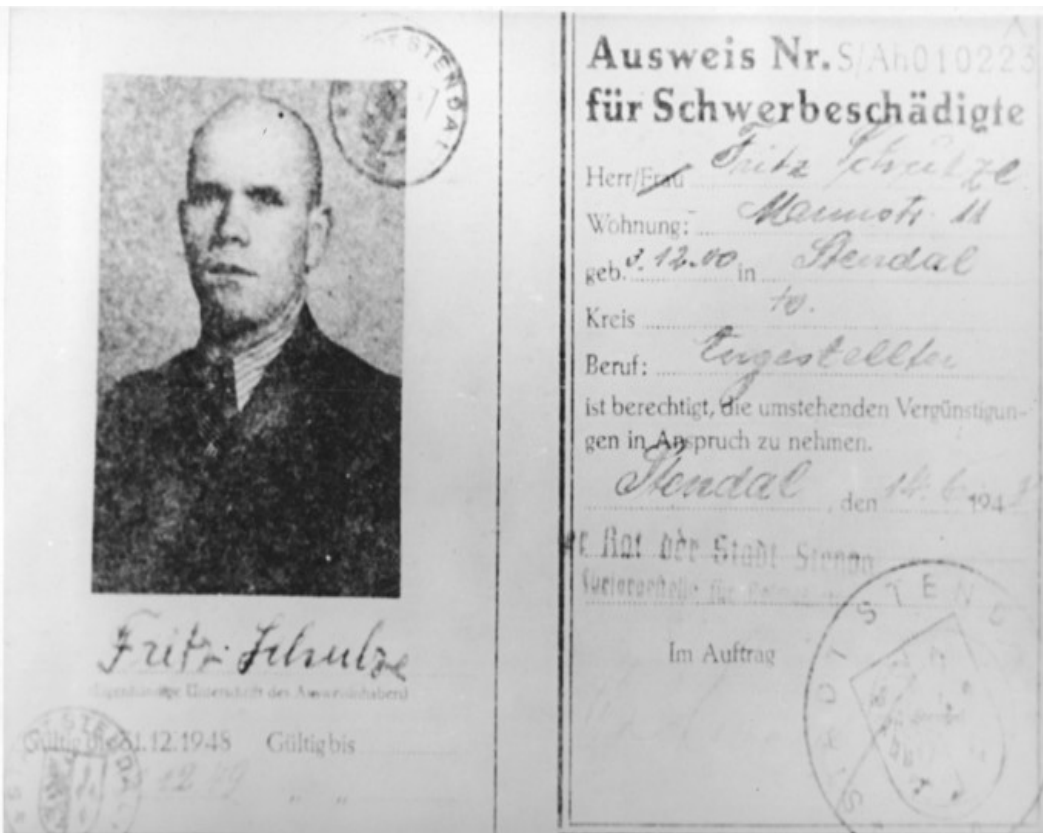 STENDAL
Fritz Schulze
Eigenhändige Unterschrift des Ausweisinhabers
Gültig bis 31.12.1948 Gültig bis
12 49 " "
STENDAL
Ausweis Nr. S/Ah010223
für Schwerbeschädigte
Herr/Frau Fritz Schulze
Wohnung: 11
geb. 3.12.00 in Stendal
Kreis
Beruf: Angestellter
ist berechtigt, die umstehenden Vergünstigun-
gen in Anspruch zu nehmen.
Stendal, den 14.6. 194
Rat der Stadt Stendal
Im Auftrag
STADT STEND